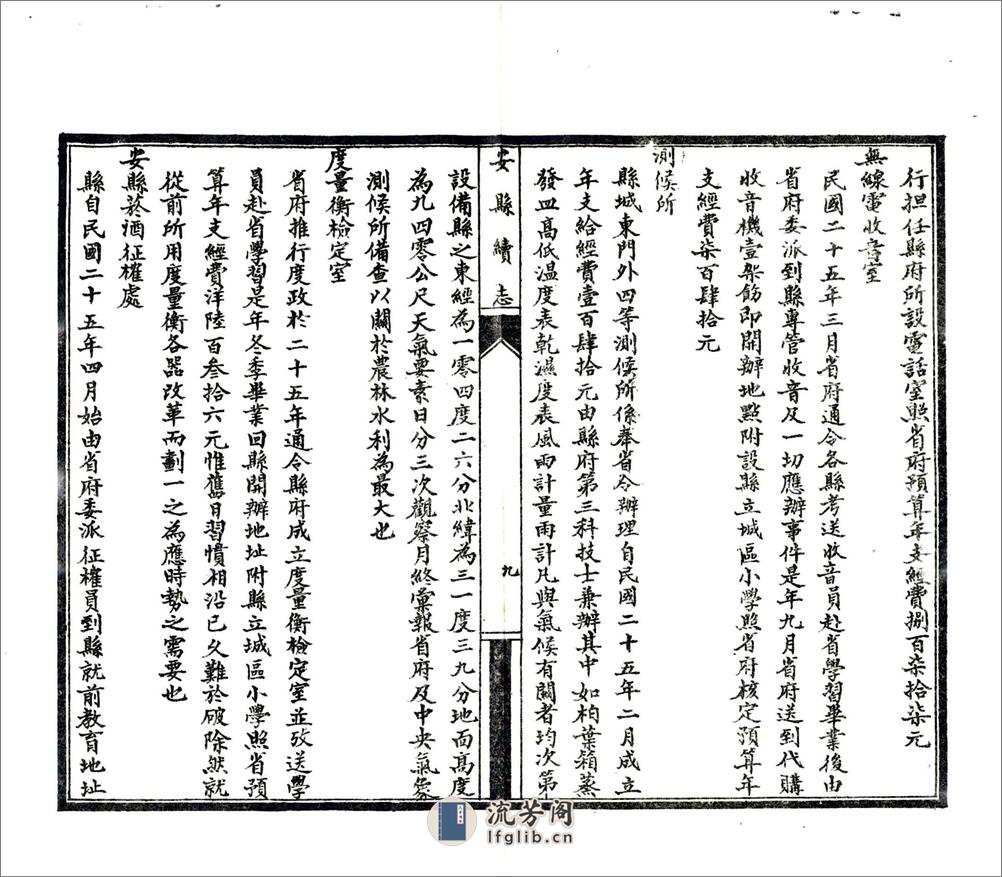 行担任縣府所設電話室照省府預算年支經費捌百柒拾柒元
無線電收音室
民國二十五年三月省府通令各縣考送收音員赴省學習畢業後由
省府委派到縣專管收音及一切應辦事件是年九月省府送到代購
收音機壹架飭即開辦地點附設縣立城區小學照省府核定預算年
支經費柒百肆拾元
測候所
縣城東門外四等測候所係奉省令辦理自民國二十五年二月成立
年支給經費壹百肆拾元由縣府第三科技士兼辦其中如柏葉箱蒸
發皿高低溫度表乾濕度表風雨計量雨計凡與氣候有關者均次第
安縣續志
九
設備縣之東經為一零四度二六分北緯為三一度三九分地面高度
為九四零公尺天氣要素日分三次觀察月終彙報省府及中央氣象
測候所備查以關於農林水利為最大也
度量衡檢定室
省府推行度政於二十五年通令縣府成立度量衡檢定室並攷送學
員赴省學習是年冬季畢業回縣開辦地址附縣立城區小學照省預
算年支經費洋陸百叁拾六元惟舊日習慣相沿已久難於破除然就
從前所用度量衡各器改革而劃一之為應時勢之需要也
安縣菸酒征榷處
縣自民國二十五年四月始由省府委派征榷員到縣就前教育地址
流芳阁
lfglib.cn